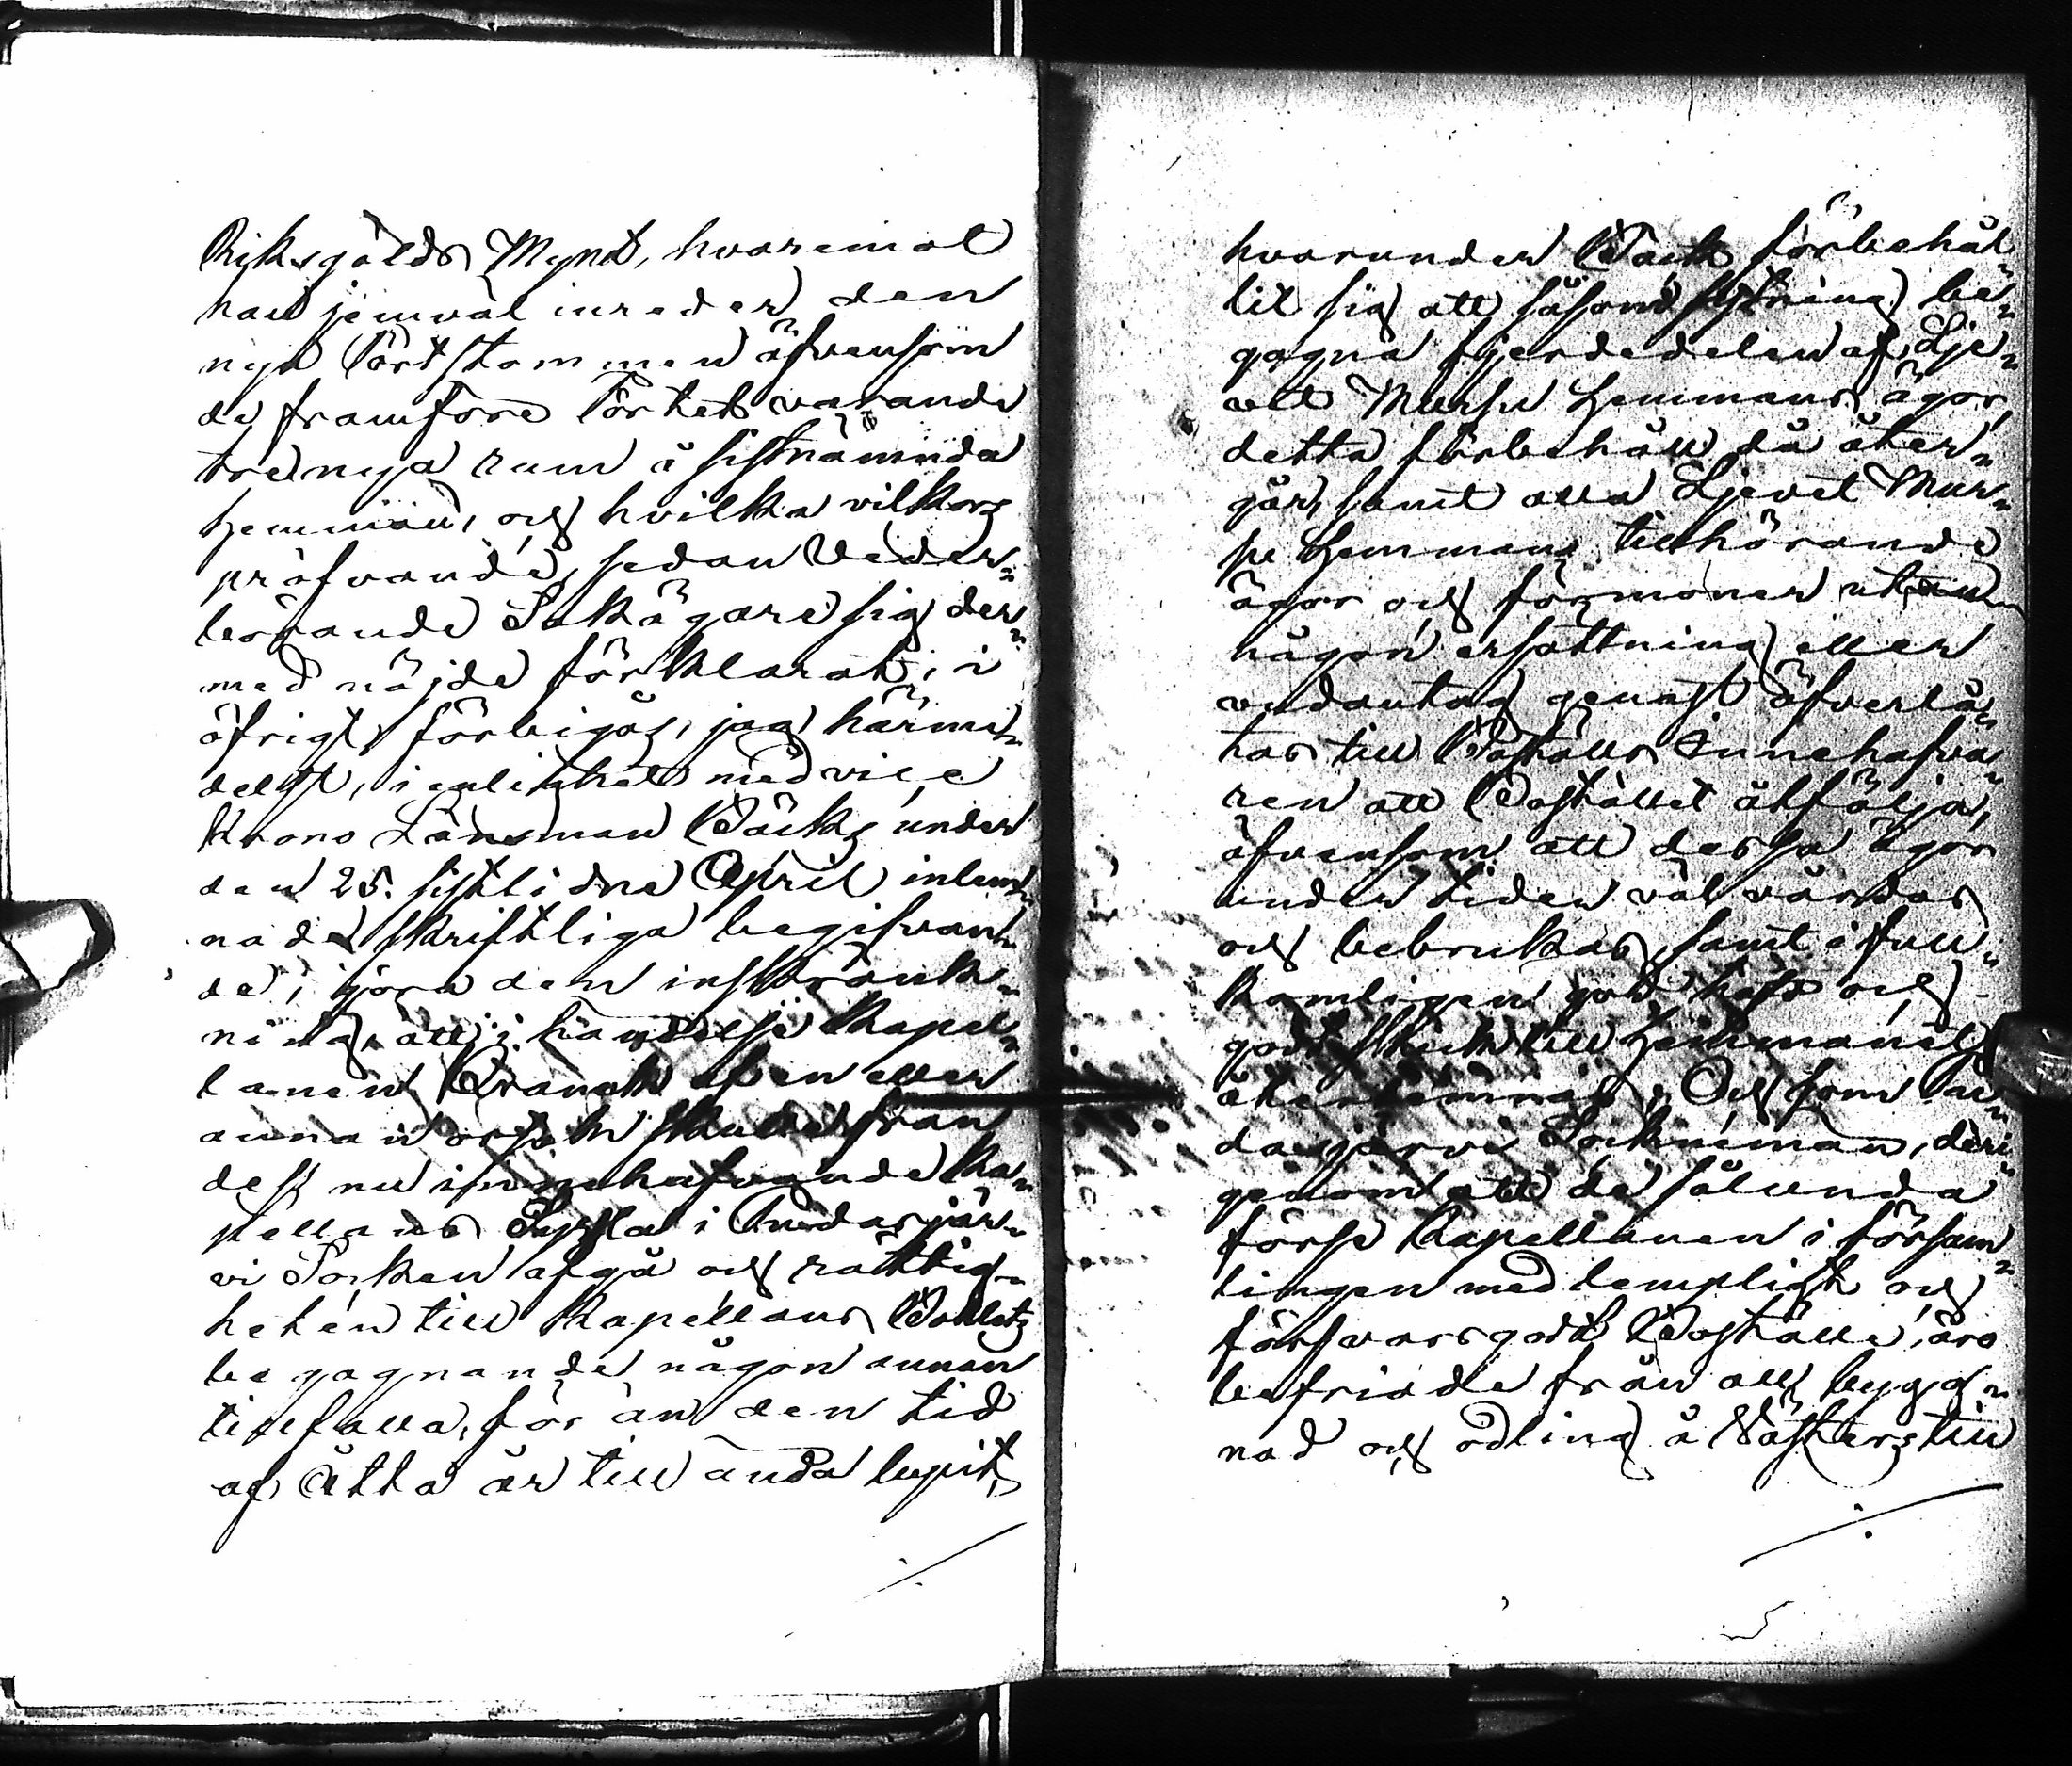 Riksgälds Mynt, hvaremot
han jemväl inreder den
nya Pörtstommen äfvensom
de framföre Pörtet varande
tre nya rum å sistnämnda
hemman, och hvilka vilkors
pröfvande, sedan veder„
börande Sakägare sig der„
med nöjde förklarat, i
öfrigt förbigås, jag härme„
delst, i enlighet med vice
Krono Länsman Bäcks under
den 25. sistlidne April inlem„
nade skriftliga begifvan„
de, göra den inskränk„
ning, att i händelse Kapel„
lanen Branch af en eller
annan orsak skulle från
dess nu innehafvande Ka„
pellans Syssla i Pudasjär„
vi Socken afgå och rättig„
heten till Kapellans Bohlets
begagnande någon annan
tillfalla, för än den tid
af Åtta år till ända lupit,
hvarunder Bäck förbehål„
lit sig att såsom sytning be„
gagna fjerdedelen af Lje„
vet Mursu Hemmans ägor,
detta förbehåll då åter„
går, samt alla Ljevet Mur„
su Hemmans tillhörande
ägor och förmoner utan
någon ersättning eller
undantag genast öfverlå„
tas till Boställs Innehafva„
ren att Bostället åtfölja,
äfvensom att dessa ägor
under tiden väl vårdas
och bebrukas, samt i full„
komligen god häfd och
godt skick till Hemmanet
återlemnas; Och som Pu„
dasjärvi Sockneman, deri„
genom att de sålunda
förse Kapellanen i försam„
lingen med lempligt och
försvarsgodt Boställe, äro
befriade från all bygg„
nad och odling å Västers till